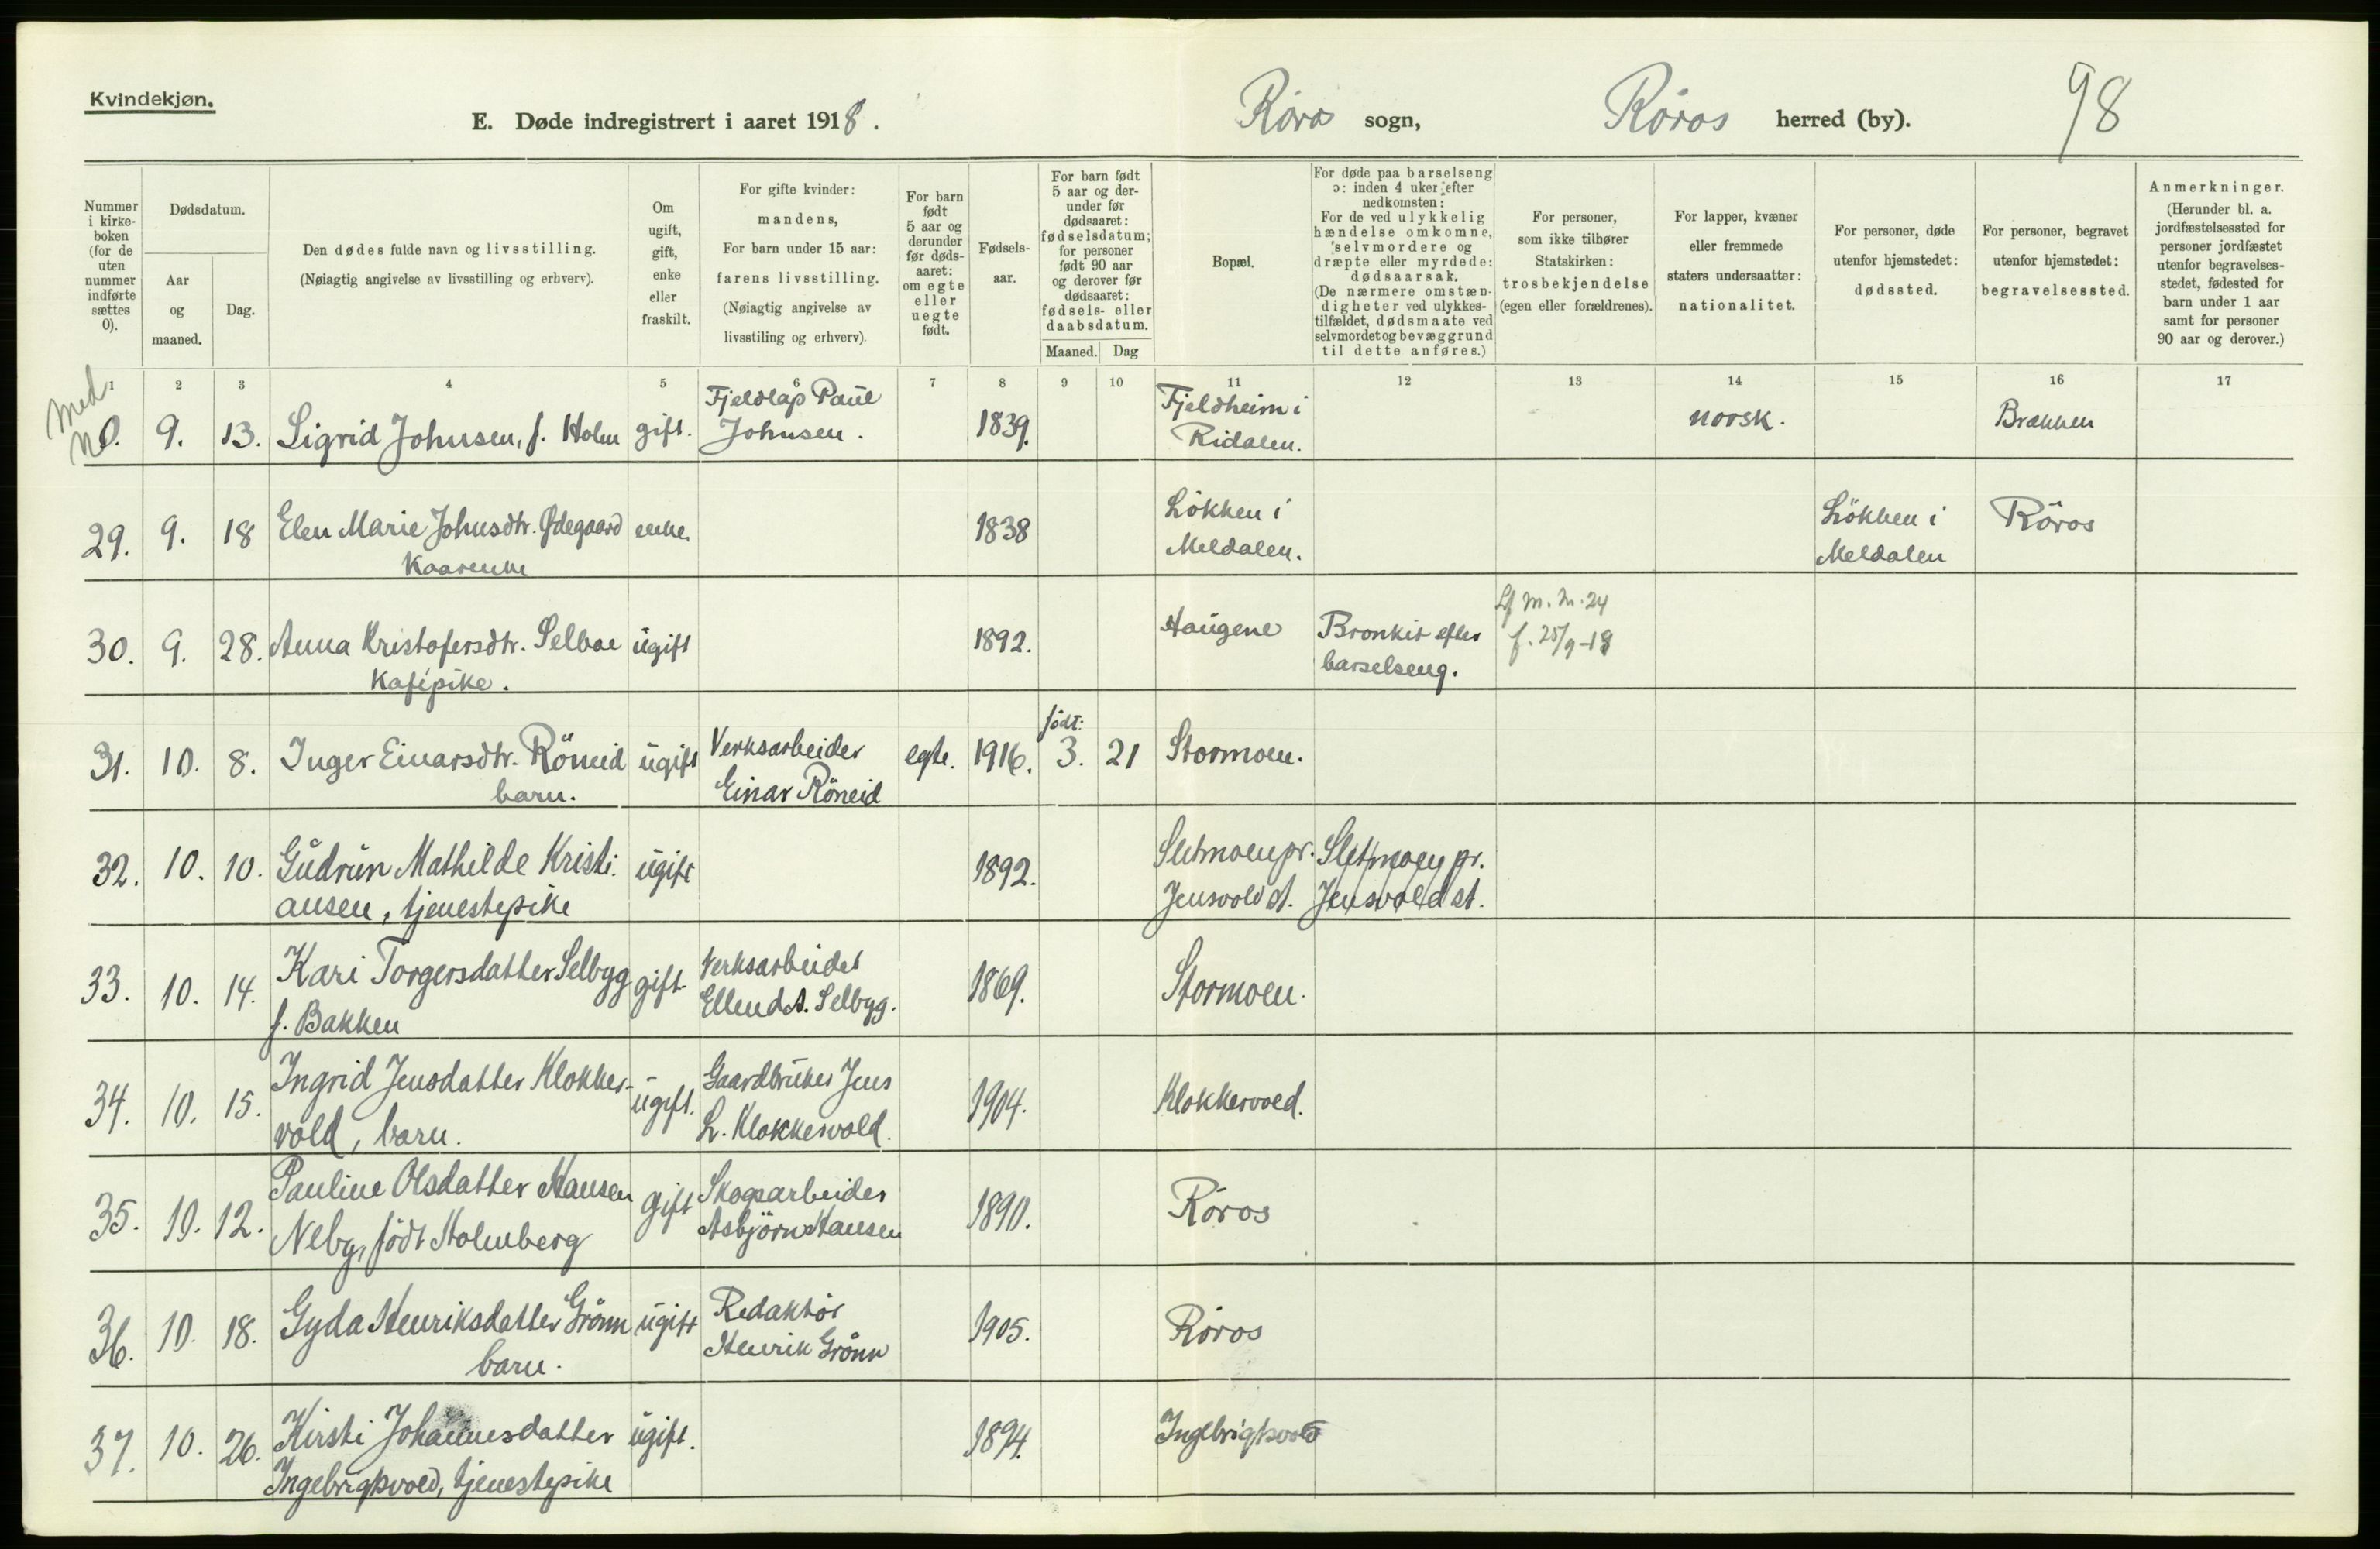 Kvindekjøn.
E. Døde indregistrert i aaret 1918.
Röros sogn,
Röros herred (by).
98
Nummer i kirke-boken (for de uten nummer indførte sættes 0).
Dødsdatum.
Aar og maaned.
Dag.
Den dødes fulde navn og livsstilling.
(Nøiagtig angivelse av livsstilling og erhverv).
Om ugift, gift, enke eller fraskilt.
For gifte kvinder: mandens,
For barn under 15 aar: farens livsstilling.
(Nøiagtig angivelse av livsstiling og erhverv).
For barn født 5 aar og derunder før døds-aaret: om egte eller uegte født.
Fødsels-aar.
For barn født 5 aar og der-under før dødsaaret: fødselsdatum; for personer født 90 aar og derover før dødsaaret: fødsels- eller daabsdatum.
Maaned.
Dag
Bopæl.
For døde paa barselseng ɔ: inden 4 uker efter nedkomsten:
For de ved ulykkelig hændelse omkomne, selvmordere og dræpte eller myrdede: dødsaarsak.
(De nærmere omstæn-digheter ved ulykkes-tilfældet, dødsmaate ved selvmordet og bevæggrund til dette anføres.)
For personer, som ikke tilhører Statskirken: trosbekjendelse (egen eller forældrenes).
For lapper, kvæner eller fremmede staters undersaatter: nationalitet.
For personer, døde utenfor hjemstedet: dødssted.
For personer, begravet utenfor hjemstedet: begravelsessted.
Anmerkninger.
(Herunder bl. a. jordfæstelsessted for personer jordfæstet utenfor begravelses-stedet, fødested for barn under 1 aar samt for personer 90 aar og derover.)
1 2 3 4 5 6 7 8 9 10 11 12 13 14 15 16 17
Med.
0. 9. 13. Sigrid Johnsen, f. Holm gift. Fjeldlap Paul Johnsen. 1839. Fjeldheim i Ridalen. norsk. Brækken
29. 9. 18 Elen Marie Johnsdtr. Ødegaard enke. 1838 Lökken i Meldalen. Lökken i Meldalen Röros
Kaarenke
30. 9. 28. Anna Kristofersdtr. Selboe ugift 1892. Haugene Bronkit efter barselseng. m. 24 f. 25/9-18
Kafépike.
31. 10. 8. Inger Einarsdtr. Röneid ugift Verksarbeider Einar Röneid egte. 1916. født: 3. 21 Stormoen.
barn.
32. 10. 10. Gudrun Mathilde Kristi- ugift 1892. Sletmoen pr. Jensvold st. Sletmoen pr. Jensvold st.
ansen, tjenestepike
33. 10. 14. Kari Torgersdatter Selbyg gift Verksarbeider Ellend A. Selbyg. 1869. Stormoen.
f. Bakken
34. 10. 15. Ingrid Jensdatter Klokker- ugift. Gaardbruker Jens L. Klokkervold. 1904. Klokkervold.
vold, barn.
35. 10. 12. Pauline Olsdatter Hansen gift Skogsarbeider Asbjörn Hansen 1890. Röros
Neby, född Holmberg
36. 10. 18. Gyda Henriksdatter Grönn ugift Redaktör Henrik Grönn 1905. Röros
barn.
37. 10. 26. Kirsti Johannesdatter ugift. 1894. Ingebrigtsvold
Ingebrigtsvold, tjenestepike